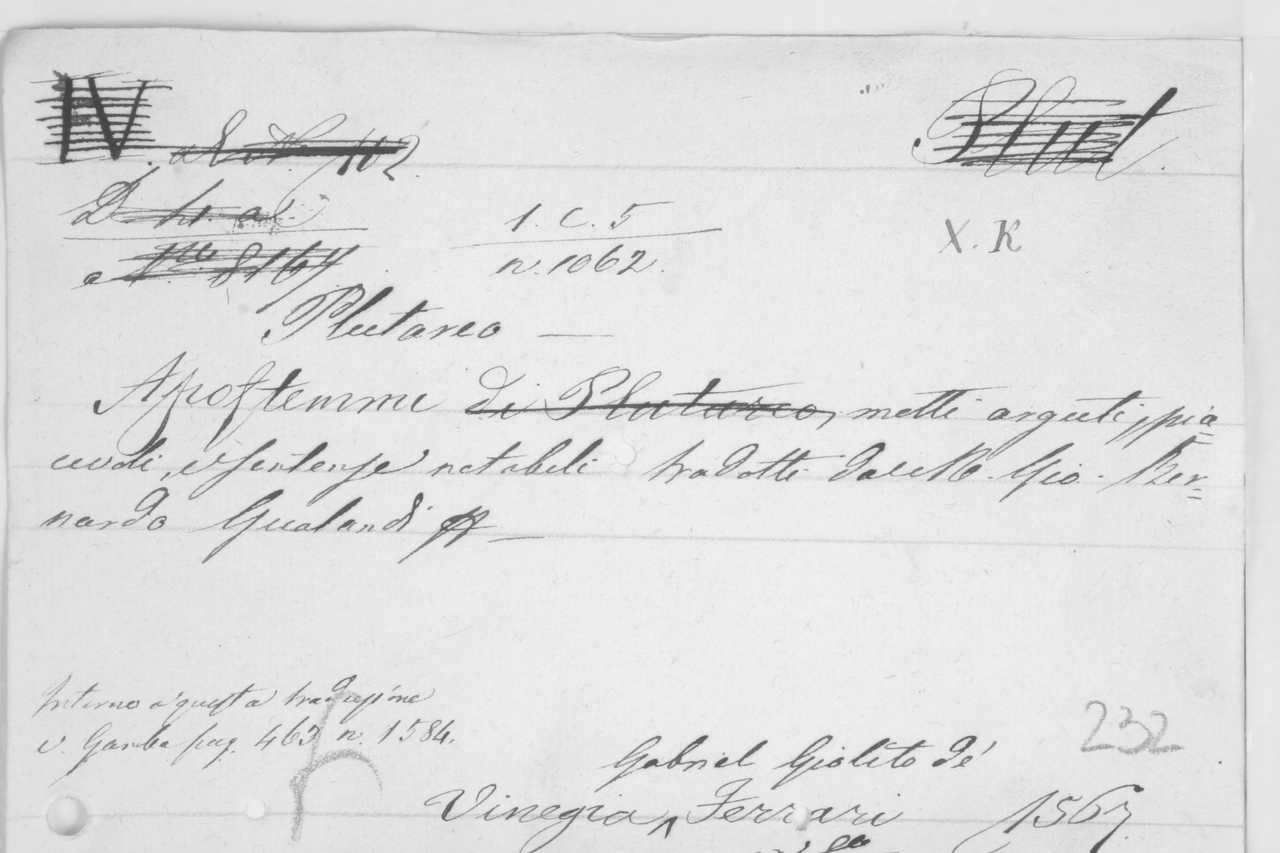 IV
Plut.
1. C. 5
X. K
n. 1062.
a N.ro 8164
Plutarco —
Apoftemmi di Plutarco, motti arguti, pia=
cevoli, e sentenze notabili tradotti da M. Gio. Ber=
nardo Gualandi —
Intorno a questa traduzione
v. Gamba pag. 463 n. 1584.
232
Gabriel Giolito de'
Vinegia Ferrari 1567.